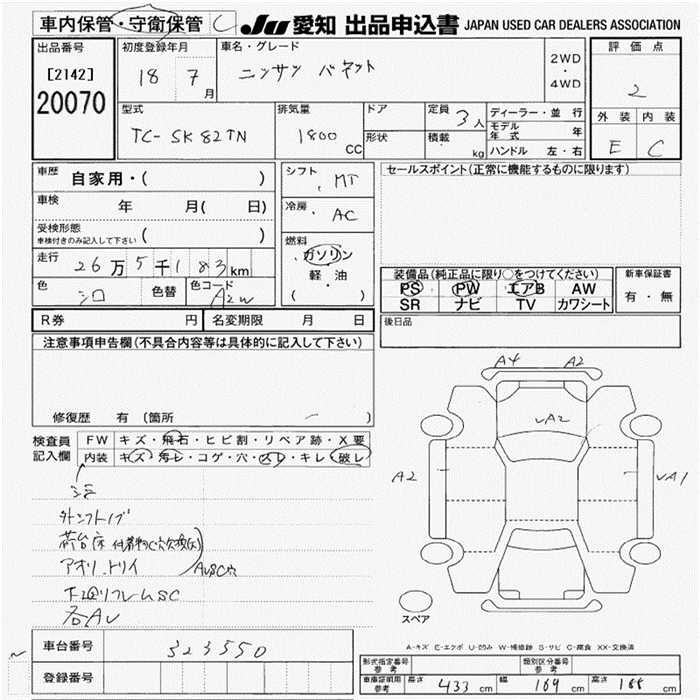 車内保管・守衛保管 C JU 愛知 出品申込書 JAPAN USED CAR DEALERS ASSOCIATION
出品番号 初度登録年月 車名・グレード 2WD・4WD 評価点
[2142] 18 7月 ニッサン バネット 2
20070
型式 排気量 ドア 定員 3人 ディーラー・並行 外装 内装
TC-SK82TN 1800 CC 形状 積載 kg モデル年式 年 E C
ハンドル 左・右
車歴 自家用・( ) シフト MT セールスポイント(正常に機能するものに限ります)
車検 年 月( 日) 冷房 AC
受検形態 ( )
車検付きのみ記入して下さい
燃料 ガソリン
走行 26万5千183km 軽・油 装備品(純正品に限り○をつけてください) 新車保証書
色 シロ 色替 色コード A2W ( ) PS PW エアB AW 有・無
SR ナビ TV カワシート
R券 円 名変期限 月 日 後日品
注意事項申告欄(不具合内容等は具体的に記入して下さい)
修復歴 有 (箇所
A4 A2
VA2
A2 VA1
検査員記入欄 FW キズ・飛石・ヒビ割・リペア跡・X要
内装 キズ・汚レ・コゲ・穴・スレ・キレ・破レ
荷台床
アオリ.トリイ
各AU
スペア
A-キズ E-エクボ U-凹み W-補修跡 S-サビ C-腐食 XX-交換済
車台番号 323550
登録番号
型式指定番号 参考 類別区分番号 参考
車庫証明用 参考 長さ 433 cm 幅 169 cm 高さ 188 cm